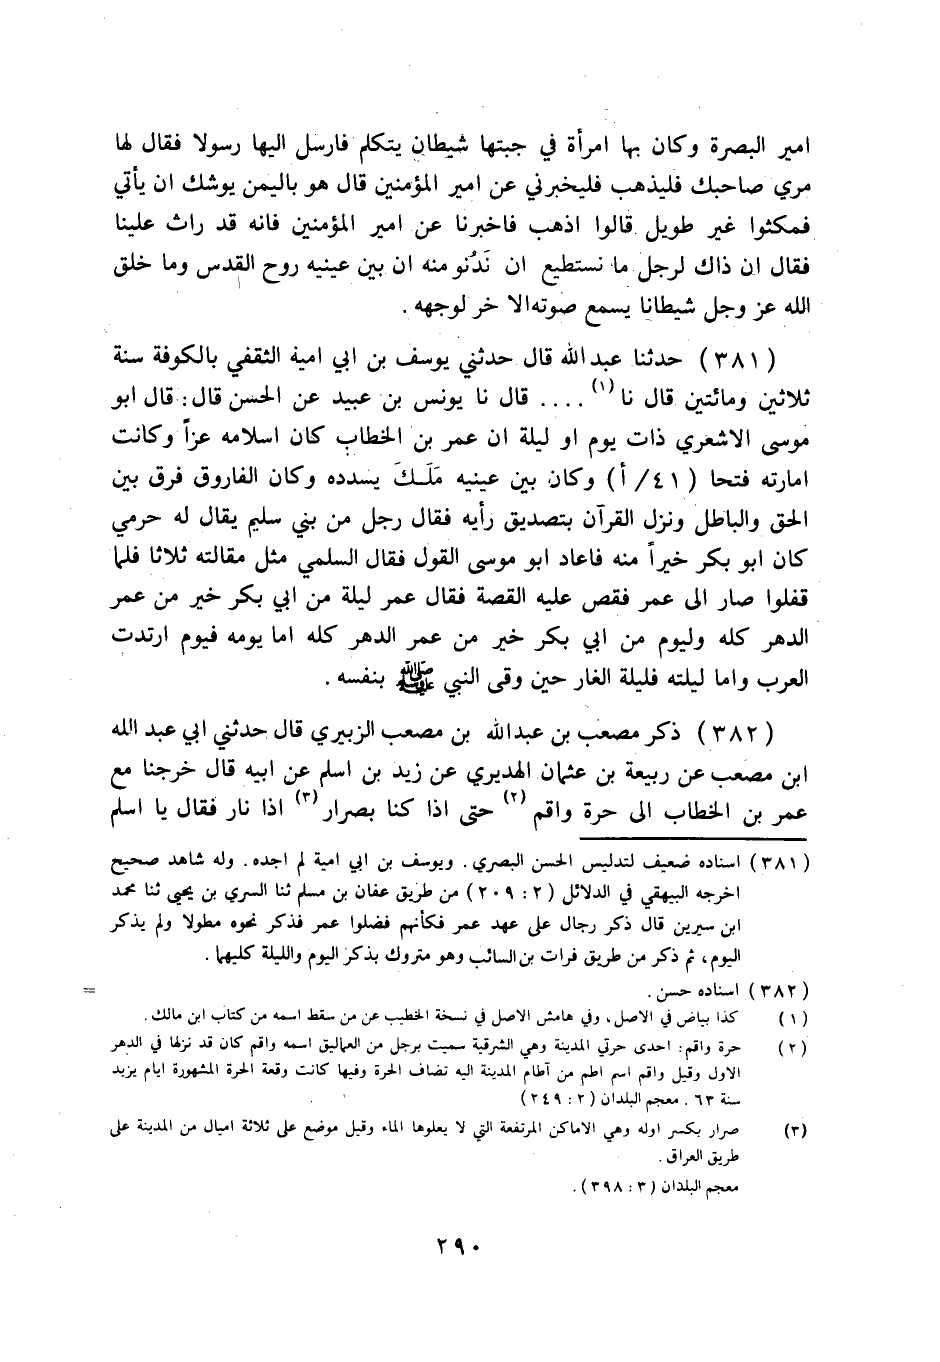 امير البصرة وكان بها امرأة في جبتها شيطان يتكلم فارسل اليها رسولا فقال لها
مري صاحبك فليذهب فليخبرني عن امير المؤمنين قال هو باليمن يوشك ان يأتي
فمكثوا غير طويل قالوا اذهب فاخبرنا عن امير المؤمنين فانه قد راث علينا
فقال ان ذاك لرجل ما نستطيع ان نَدْنُو منه ان بين عينيه روح القدس وما خلق
الله عز وجل شيطانا يسمع صوته الا خر لوجهه .
(٣٨١) حدثنا عبد الله قال حدثني يوسف بن ابي امية الثقفي بالكوفة سنة
ثلاثين ومائتين قال نا (١) .... قال نا يونس بن عبيد عن الحسن قال: قال ابو
موسى الاشعري ذات يوم او ليلة ان عمر بن الخطاب كان اسلامه عزاً وكانت
امارته فتحا (٤١/ أ) وكان بين عينيه مَلَكَ يسدده وكان الفاروق فرق بين
الحق والباطل ونزل القرآن بتصديق رأيه فقال رجل من بني سليم يقال له حرمي
كان ابو بكر خيراً منه فاعاد ابو موسى القول فقال السلمي مثل مقالته ثلاثا فلما
قفلوا صار الى عمر فقص عليه القصة فقال عمر ليلة من ابي بكر خير من عمر
الدهر كله وليوم من ابي بكر خير من عمر الدهر كله اما يومه فيوم ارتدت
العرب واما ليلته فليلة الغار حين وقى النبي ﷺ بنفسه .
(٣٨٢) ذكر مصعب بن عبدالله بن مصعب الزبيري قال حدثني ابي عبد الله
ابن مصعب عن ربيعة بن عثمان الهديري عن زيد بن اسلم عن ابيه قال خرجنا مع
عمر بن الخطاب الى حرة واقم (٢) حتى اذا كنا بصرار (٣) اذا نار فقال يا اسلم
(٣٨١) اسناده ضعيف لتدليس الحسن البصري . ويوسف بن ابي امية لم اجده . وله شاهد صحيح
اخرجه البيهقي في الدلائل (٢ : ٢٠٩) من طريق عفان بن مسلم ثنا السري بن يحيى ثنا محمد
ابن سيرين قال ذكر رجال على عهد عمر فكأنهم فضلوا عمر فذكر نحوه مطولا ولم يذكر
اليوم ، ثم ذكر من طريق فرات بن السائب وهو متروك بذكر اليوم والليلة كليهما .
(٣٨٢) اسناده حسن . =
(١) كذا بياض في الاصل ، وفي هامش الاصل في نسخة الخطيب عن من سقط اسمه من كتاب ابن مالك .
(٢) حرة واقم: احدى حرتي المدينة وهي الشرقية سميت برجل من العماليق اسمه واقم كان قد نزلها في الدهر
الاول وقيل واقم اسم اطم من آطام المدينة اليه تضاف الحرة وفيها كانت وقعة الحرة المشهورة ايام يزيد
سنة ٦٣ . معجم البلدان (٢ : ٢٤٩)
(٣) صرار بكسر اوله وهي الاماكن المرتفعة التي لا يعلوها الماء وقيل موضع على ثلاثة اميال من المدينة على
طريق العراق .
معجم البلدان (٣ : ٣٩٨) .
٢٩٠